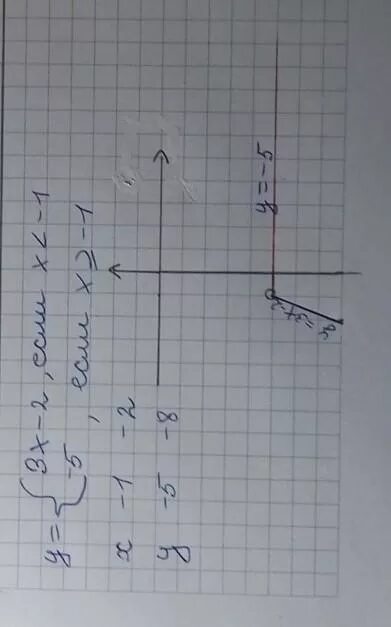 y = { 3x-2, если x < -1
-5, если x ≥ -1
x -1 -2
y -5 -8
y=-5
y=3x-2